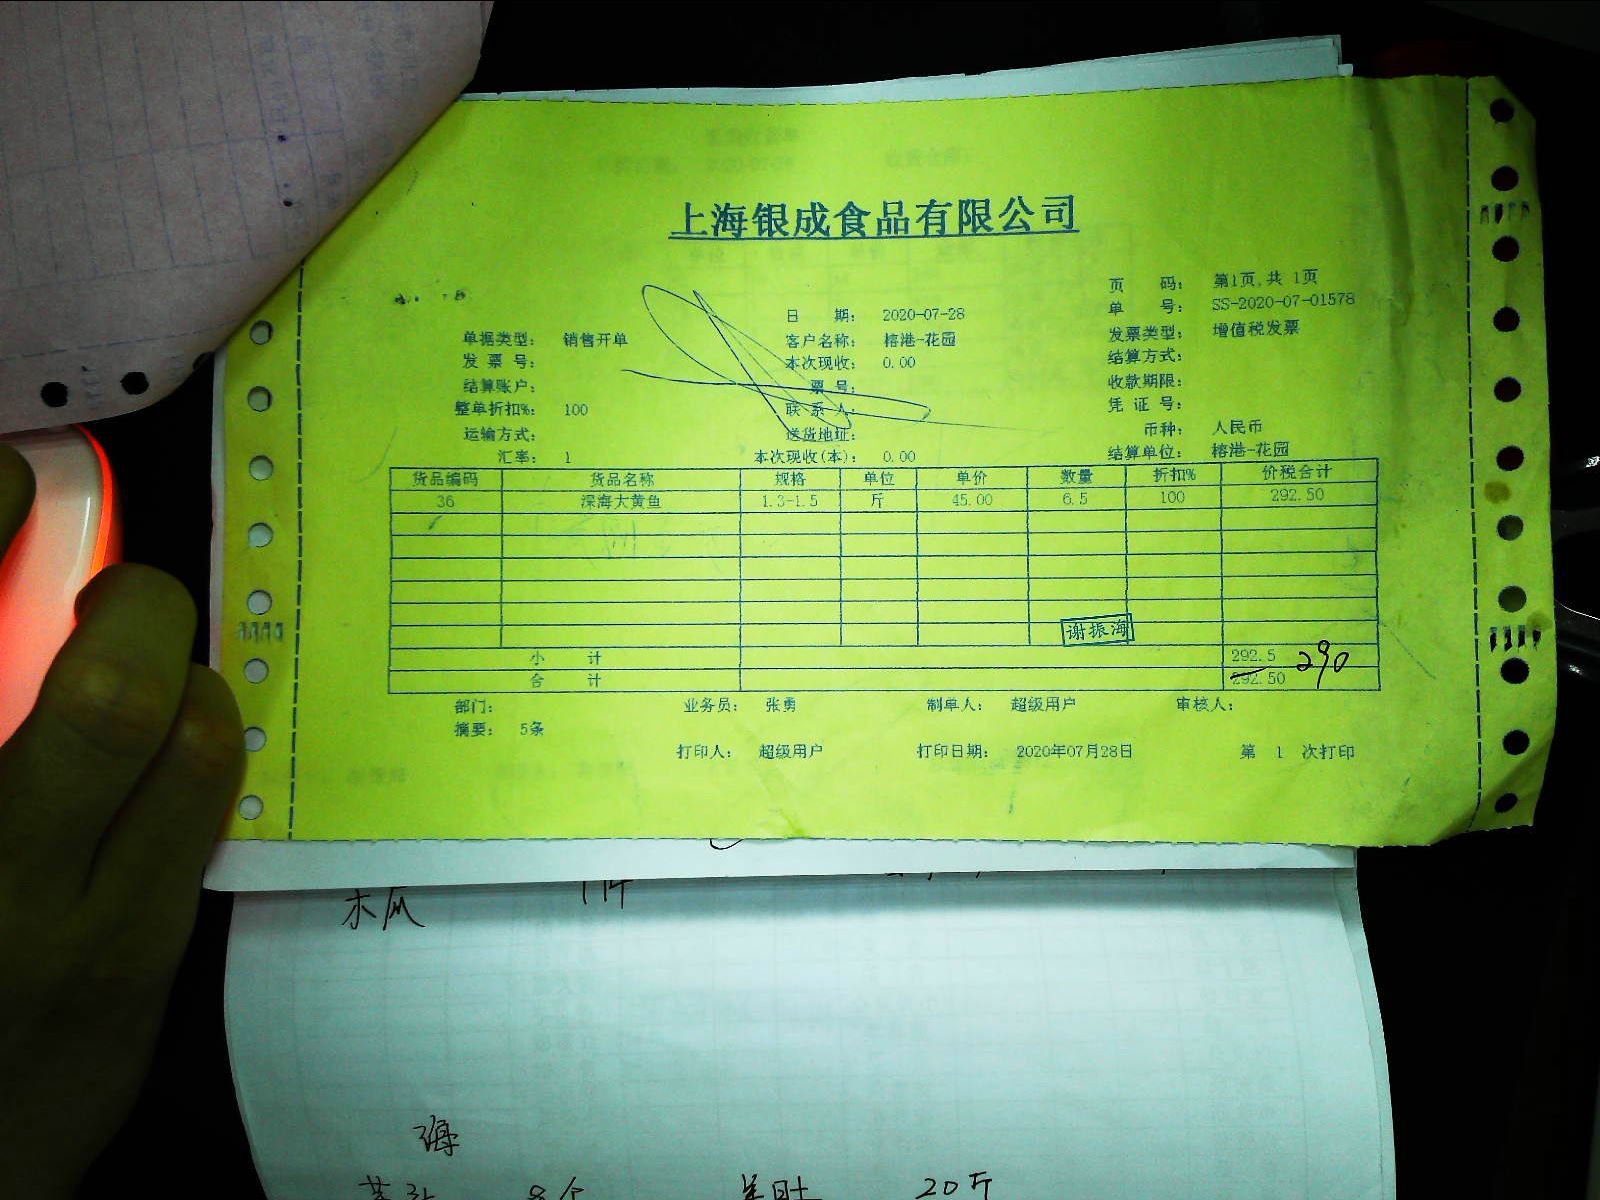 上海银成食品有限公司
页 码: 第1页,共 1页
日 期: 2020-07-28 单 号: SS-2020-07-01578
单据类型: 销售开单 客户名称: 榕港-花园 发票类型: 增值税发票
发 票 号: 本次现收: 0.00 结算方式:
结算账户: 票 号: 收款期限:
整单折扣%: 100 联 系 人: 凭 证 号:
运输方式: 送货地址: 币种: 人民币
汇率: 1 本次现收(本): 0.00 结算单位: 榕港-花园
货品编码 货品名称 规格 单位 单价 数量 折扣% 价税合计
36 深海大黄鱼 1.3-1.5 斤 45.00 6.5 100 292.50
谢振海
小 计 292.5 290
合 计 292.50
部门: 业务员: 张勇 制单人: 超级用户 审核人:
摘要: 5条
打印人: 超级用户 打印日期: 2020年07月28日 第 1 次打印
木瓜
海
8个 20斤